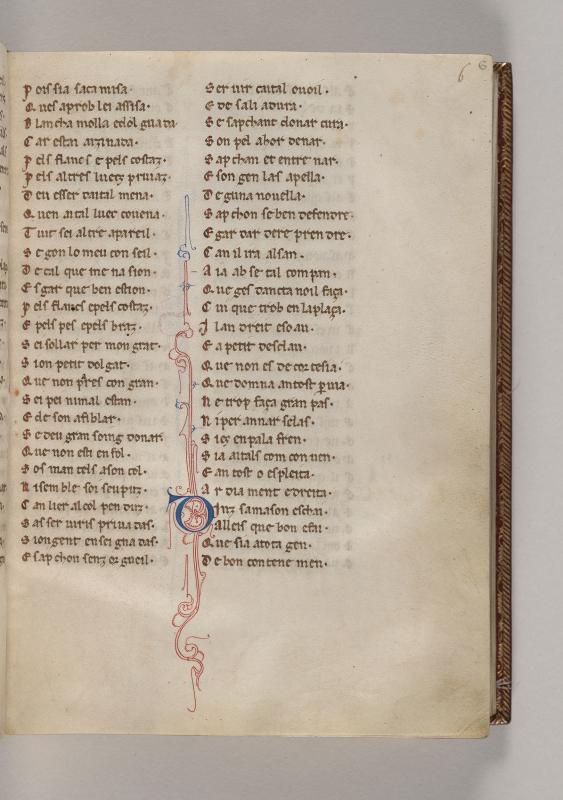 6
6
P ois sia sa camisa·
Q ues aprob lei assisa·
B lancha molla e dolguada·
C ar estai aizinada·
P els flancs e pels costaz·
P els altres luecs privaz·
D eu esser daital mena·
Q uen aital luec covena·
T uit sei altre apareil·
S egon lo meu conseil·
D e cal que mena sion·
E sgar que ben estion·
P els flancs e pels costaz·
E pels pes e pels braz·
S ei sollar per mon grat·
S ion petit dolgat·
Q ue non pres con gran·
S ei pei nimal estan·
E de son afiblar·
S e deu gran soing donar
Q ue non esti en fol·
S os mantels a son col·
N i semble soi seu puiz·
C an lier al col penduz·
S as serviris privadas·
S ion gent enseignadas·
E sapchon senz orgueil·
S ervir cui tal o voil·
E de sali adura·
S e sapchant donar cura·
S on pel ahordenar·
S apchan et entrenar·
E son gen las apella·
D eguna novella·
S apchon se ben defendre·
E gardar de re prendre·
C an il ira alsan·
A ia ab se tal compan·
Q ue ges dancta noil faça·
C ui que trob en la plaça·
I l an dreit e soau·
E a petit desclau·
Q ue non es de cortesia·
Q ue domna an tost per via·
N e trop faça gran pas·
N i per annar se las·
S i ies en palafren·
S ia aitals com conven·
E an tost o espleita·
A rdiament e dreita·
D inz sa mason escha·
Valleis que bon esti·
Q ue sia a tota gen·
D e bon contenemen·